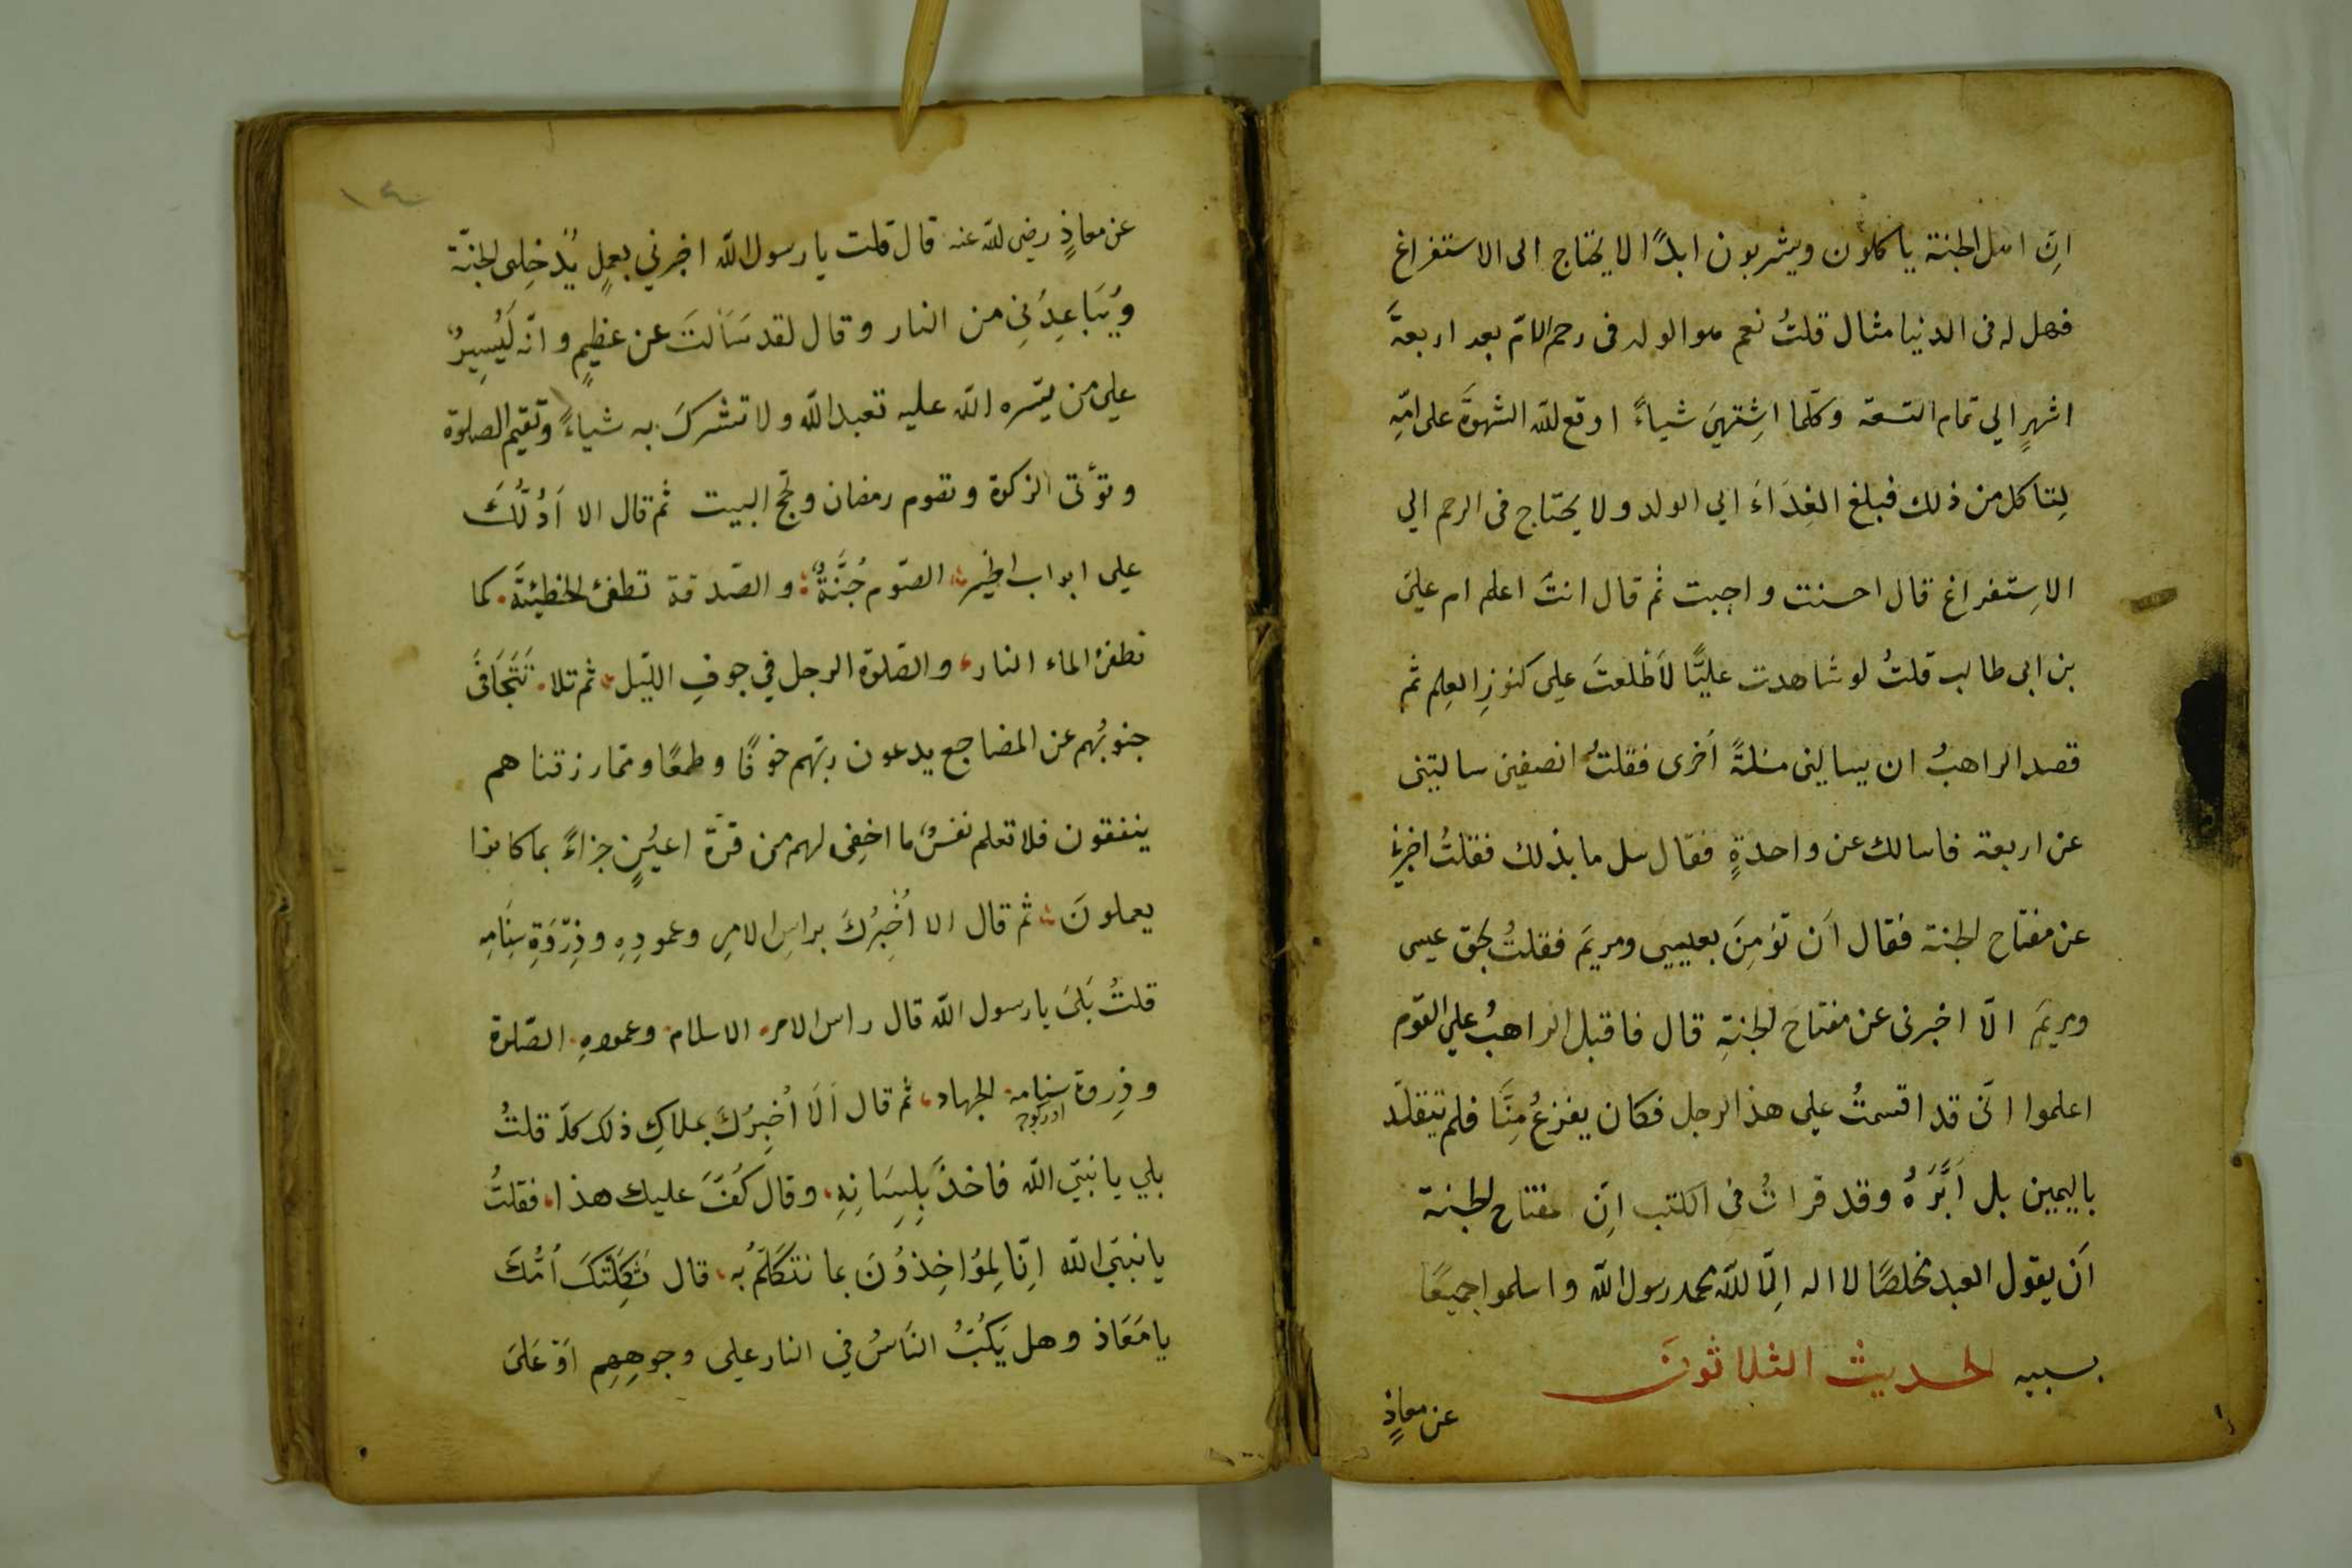 انّ اهل الجنة ياكلون ويشربون ابدًا لا يحتاج الى الاستفراغ
فهل له فى الدنيا مثال قلتُ نعم هو الولد فى رحم الامّ بعد اربعة
اشهرٍ الي تمام التسعة وكلّما اشِتهيَ شياءً اوقع للّه الشهوةَ على امّهِ
لِتاكل من ذلك فبلغ الغِذَاءَ الي الولد ولا يحتاج فى الرحم الي
الاسِتفراغ قال احسنت واجبت ثم قال انتَ اعلم ام عليَ
بن ابى طالب قلتُ لو شاهدت عليًّا لاَطّلعتَ علي كنوزِ العِلم ثم
قصد الراهبُ ان يسالينى مسٔلةً اُخرى فقلتُ انصيفين سالتينى
عن اربعة فاسالك عن واحدةٍ فقال سل ما بذلك فقلتُ اخبرنى
عن مفتاح الجنة فقال اَن تؤمِنَ بعيسى ومريَم فقلتُ بحق عيسى
ومريَم الّا اخبرنى عن مفتاح الجنةِ قال فاقبل الراهبُ علي القوم
اعلموا انّى قد اقسمتُ علي هذ الرجل فكان يفزعُ مِنَّا فلم تيقلّد
باليمين بل اَبَّرَهُ وقد قراتُ فى الكتب انّ مفتاح الجنة
اَن يقول العبد مخلصًا لا اله الّا للّه محمد رسول اللّه واسلموا جميعًا
بسببه الحديث الثلاثونَ
عن معاذٍ
١٤
عن معاذٍ رضى للّه عنه قال قلت يا رسول اللّه اخبرني بعملٍ يُدخِلى الجنّة
وَيُبَاعِدُنِي من النار وقال لقد سَاَلتَ عن عظيمٍ وانّه لَيُسِيرٌ
علي من يسّره اللّه عليه تعبد اللّه ولا تشركَ به شياءً وتقيم الصلوة
وتؤتى الزكوة وتقوم رمضان وتحج البيت ثم قال الا اَدُلُّكَ
علي ابواب الخير الصّوم جُنَّةٌ والصّدقة تطفئ الخطيئةَ كما
تطفئ الماء النار والصّلوة الرجل في جوفِ الليّل ثم تلا تَتَجَافَى
جنوبُهم عن المضاجع يدعون ربّهم خوفًا وطمعًا وممّا رزقنا هم
ينفقون فلا تعلم نفسٌ ما اخفِى لهم من قرّة اعيُنٍ جزاءً بما كانوا
يعملونَ ثم قال الا اُخْبِرُكَ براسِ الامرِ وعمودِهِ وذِرْوَةِ سِنَامِه
قلتُ بَلىَ يا رسول اللّه قال راس الامر الاسلام وعمودهِ الصّلوة
وذِروة سِنامة الجهاد ثم قال اَلَا اُخبِرُكَ بملاكِ ذلك كلّه قلتُ
بلي يا نبّي اللّه فاخذَ بِلِسَانِهِ وقال كُفَّ عليك هذا فقلتُ
يا نبىّ اللّه انّا لِمؤاخِذُونَ بما نتكَلّمُ به قال ثكِلَتْكَ اُمُّكَ
يا مَعَاذ وهل يَكُبُّ النّاسُ في النار علي وجوهِهِم اَوْ عَلىَ